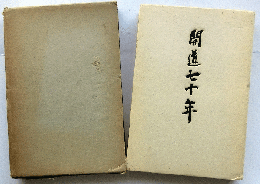 開道七十年